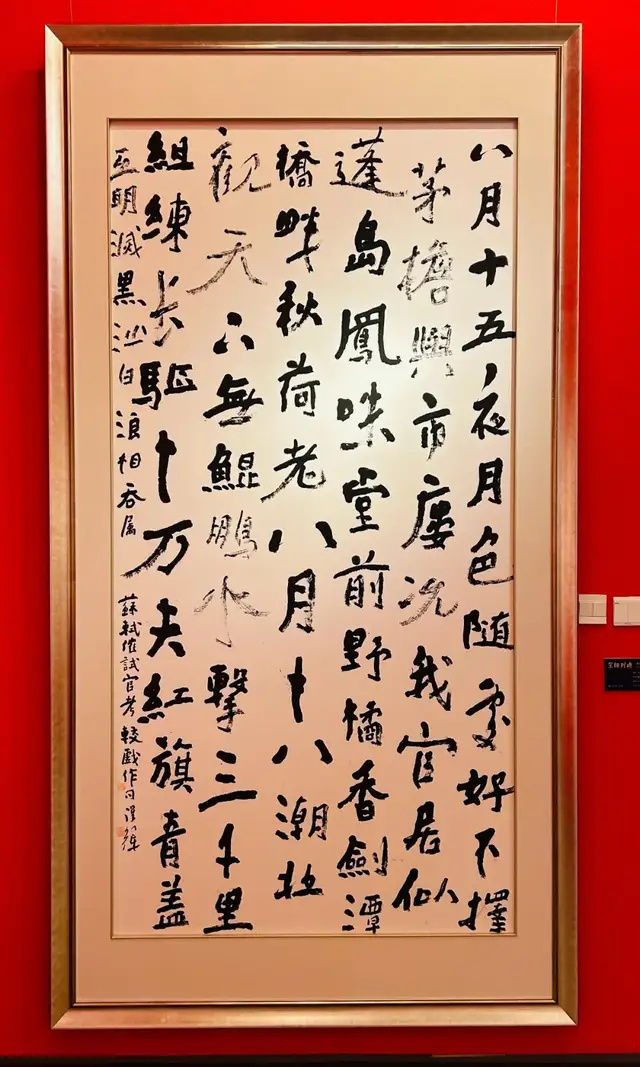 八月十五夜月色随處好不擇
茅檐與市廔况我官居似
蓬島鳳咮堂前野橘香劍潭
橋畔秋荷老八月十八潮壯
觀天下無鯤鵬水擊三千里
組練长驅十万夫紅旗青盖
互明滅黑沙白浪相吞屠
蘇軾催試官考較戲作句